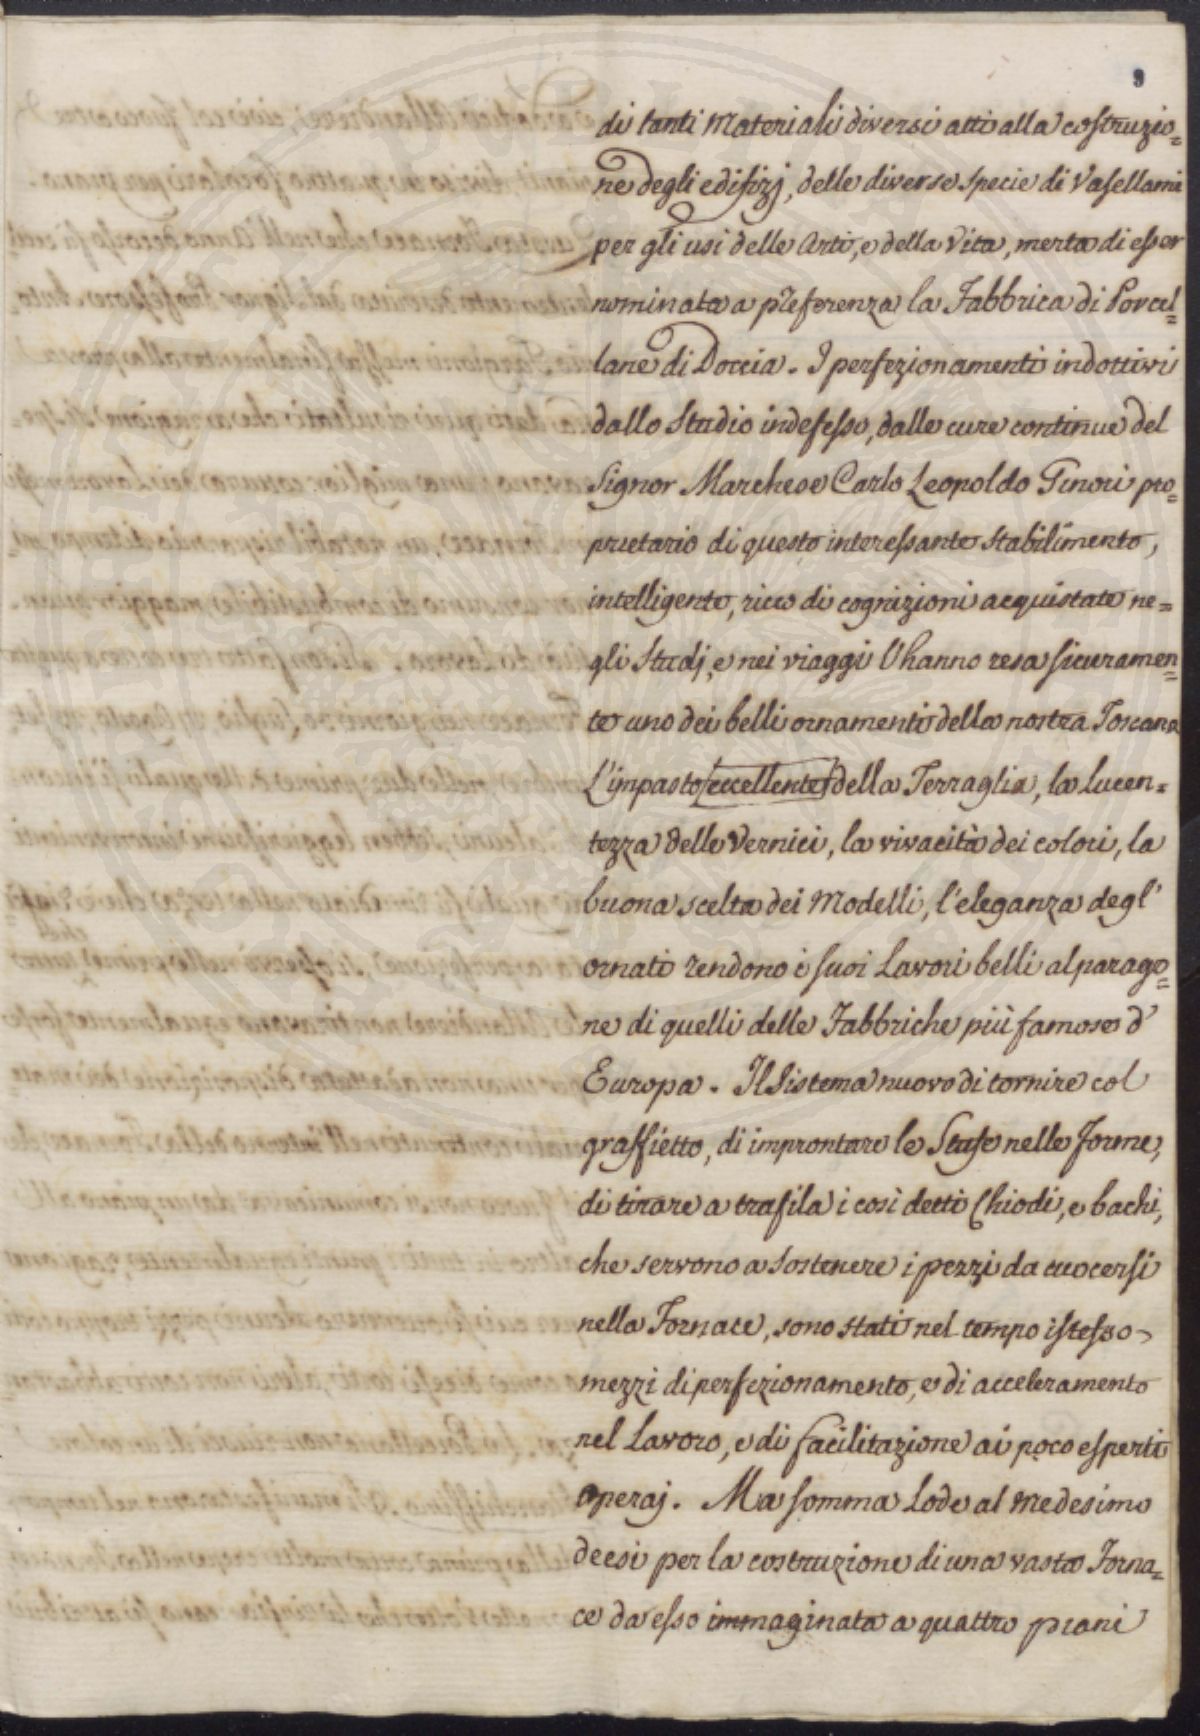 9
di tanti Materiali diversi atti alla costruzio=
ne degli edifizj, delle diverse specie di Vasellami
per gli usi delle Arti, e della Vita, merta di esser
nominata a preferenza la Fabbrica di Porcel=
lane di Doccia. I perfezionamenti indottivi
dallo Studio indefesso, dalle cure continue del
Signor Marchese Carlo Leopoldo Ginori pro=
prietario di questo interessante stabilimento,
intelligente, ricco di cognizioni acquistate ne=
gli Studj, e nei viaggi l'hanno resa sicuramen=
te uno dei belli ornamenti della nostra Toscana
L'impasto eccellente della Terraglia, la lucen=
tezza delle Vernici, la vivacità dei colori, la
buona scelta dei Modelli, l'eleganza degl'
ornati rendono i suoi Lavori belli al parago=
ne di quelli delle Fabbriche più famose d'
Europa. Il Sistema nuovo di tornire col
graffietto, di improntare le Stafe nelle forme,
di tirare a trafila i così detti Chiodi, e bachi,
che servono a sostenere i pezzi da cuocersi
nella Fornace, sono stati nel tempo istesso
mezzi di perfezionamento, e di acceleramento
nel Lavoro, e di facilitazione ai poco esperti
Operaj. Ma somma Lode al Medesimo
deesi per la costruzione di una vasta Forna=
ce da esso immaginata a quattro piani